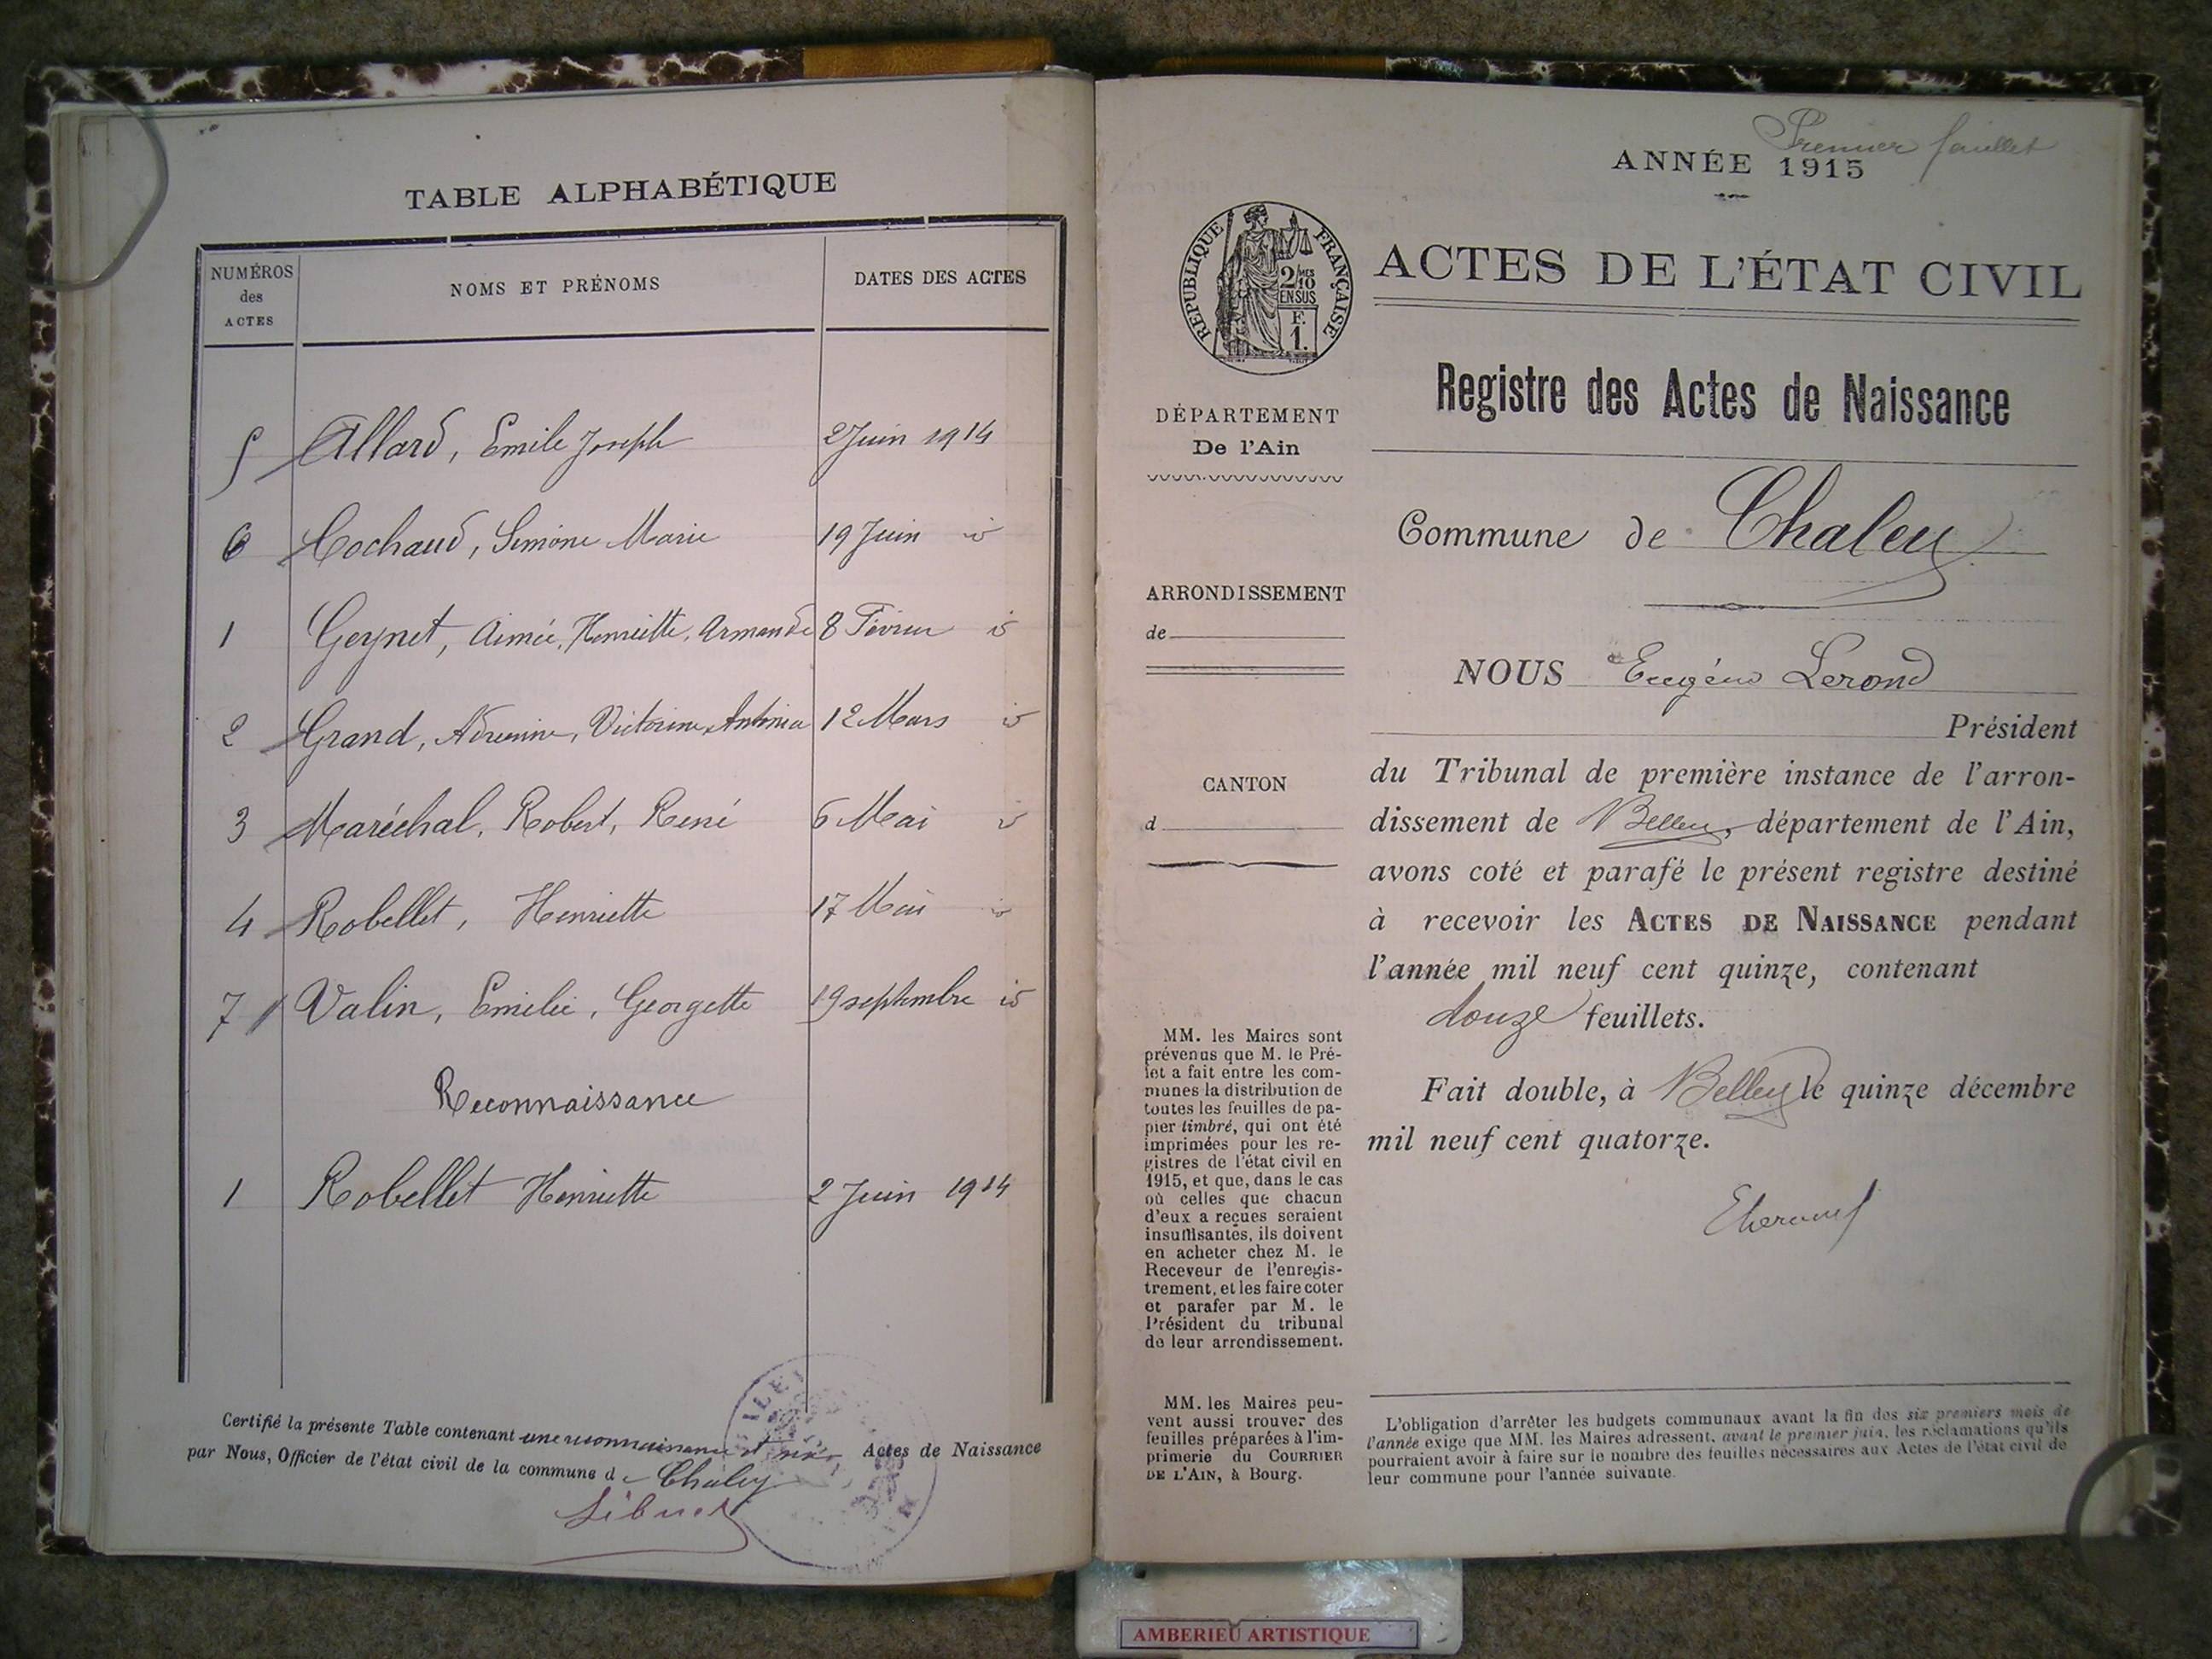 TABLE ALPHABÉTIQUE
NUMÉROS des ACTES NOMS ET PRÉNOMS DATES DES ACTES
5 Allard, Emile Joseph 2 Juin 1914
6 Cochaud, Simone Marie 19 Juin id
1 Geynet, Aimée, Henriette, Armande 8 Février id
2 Grand, Adrienne, Victorine, Antonia 12 Mars id
3 Maréchal, Robert, René 6 Mai id
4 Robellet, Henriette 17 Mai id
7 Valin, Emilie, Georgette 19 septembre id
Reconnaissance
1 Robellet Henriette 2 Juin 1914
Certifié la présente Table contenant une reconnaissance et Actes de Naissance
par Nous, Officier de l'état civil de la commune de Chaley
Premier feuillet
ANNÉE 1915
RÉPUBLIQUE FRANÇAISE
2/10 MES
EN SUS
F.
1.
ACTES DE L'ÉTAT CIVIL
Registre des Actes de Naissance
DÉPARTEMENT
De l'Ain
Commune de Chaley
ARRONDISSEMENT
de
CANTON
d
NOUS Eugène Lerond
Président
du Tribunal de première instance de l'arron-
dissement de Belley, département de l'Ain,
avons coté et parafé le présent registre destiné
à recevoir les ACTES DE NAISSANCE pendant
l'année mil neuf cent quinze, contenant
douze feuillets.
Fait double, à Belley le quinze décembre
mil neuf cent quatorze.
MM. les Maires sont
prévenus que M. le Pré-
fet a fait entre les com-
munes la distribution de
toutes les feuilles de pa-
pier timbré, qui ont été
imprimées pour les re-
gistres de l'état civil en
1915, et que, dans le cas
où celles que chacun
d'eux a reçues seraient
insuffisantes, ils doivent
en acheter chez M. le
Receveur de l'enregis-
trement, et les faire coter
et parafer par M. le
Président du tribunal
de leur arrondissement.
MM. les Maires peu-
vent aussi trouver des
feuilles préparées à l'im-
primerie du COURRIER
DE L'AIN, à Bourg.
L'obligation d'arrêter les budgets communaux avant la fin des six premiers mois de
l'année exige que MM. les Maires adressent, avant le premier juin, les réclamations qu'ils
pourraient avoir à faire sur le nombre des feuilles nécessaires aux Actes de l'état civil de
leur commune pour l'année suivante.
AMBERIEU ARTISTIQUE